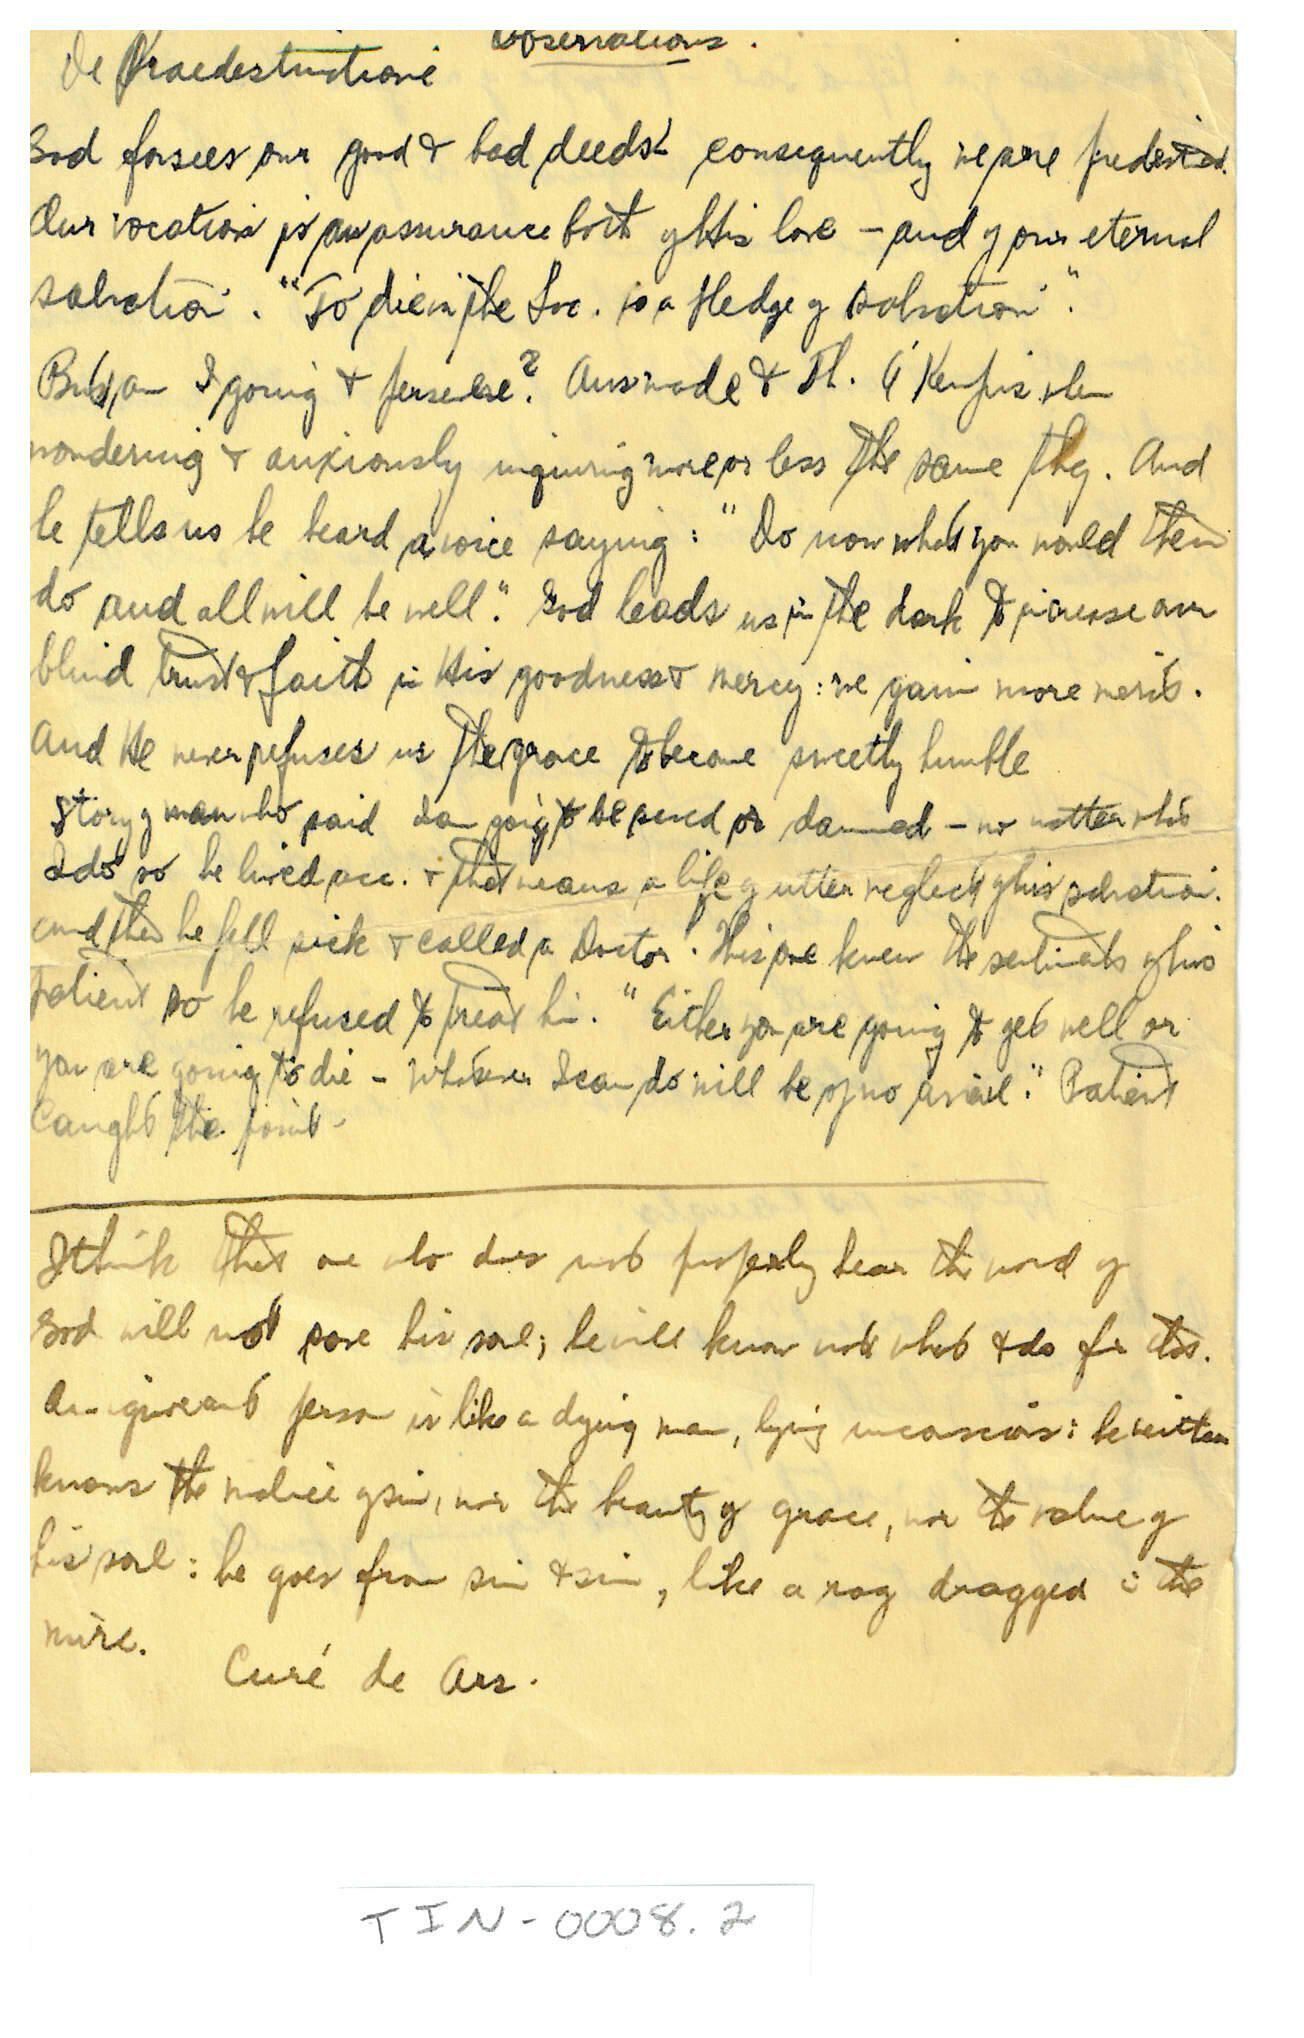 Observations.
De Praedestinatione
God forsees our good & bad deeds consequently we are predestined.
Our vocation is an assurance both of His love - and of our eternal
salvation. "To die in the Soc. is a pledge of salvation".
But, am I going to persevere? Ans made to Th. á Kempis when
wondering & anxiously inquiring more or less the same thg. And
he tells us he heard a voice saying: "Do now what you would then
do and all will be well." God leads us in the dark to increase our
blind trust & faith in His goodness & mercy: we gain more merit.
And He never refuses us the grace to become sweetly humble
Story of man who said I am going to be saved or damned - no matter what
I do so he lived acc. & that means a life of utter neglect of his salvation.
and then he fell sick & called a Doctor. This one knew the sentiments of his
patient so he refused to treat him. "Either you are going to get well or
you are going to die - whatever I can do will be of no avail." Patient
caught the point-
I think that one who does not properly hear the word of
God will not save his soul; he will know not what to do for this.
An ignorant person is like a dying man, lying unconscious: he neither
knows the malice of sin, nor the beauty of grace, nor the value of
his soul: he goes from sin to sin, like a rag dragged in the
mire.
Curé de Ars.
TIN-0008.2